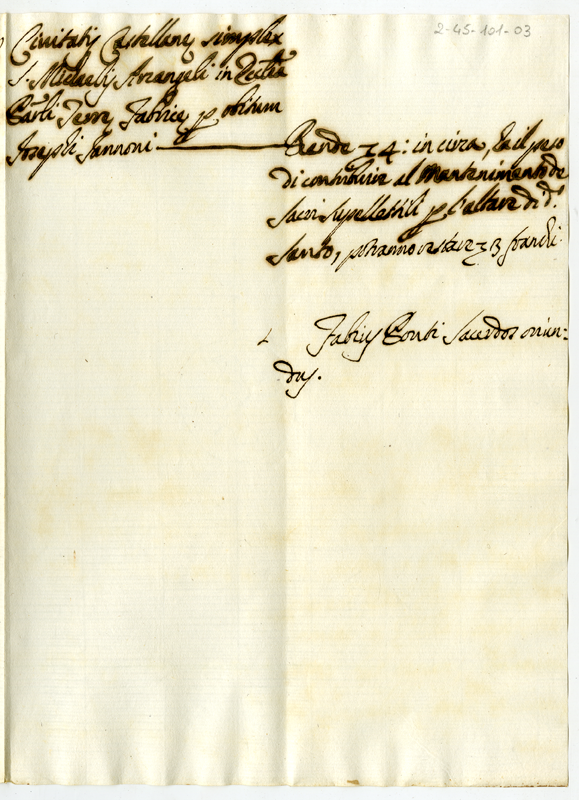 2-45-101-03
Civitatis Castellanę simplex
S. Michaelis Arcangeli in Ecclia
Terrę Fabricę p obitum
Josephi Jannoni
Rende 24: in circa, ha il peso
di contribuire al Mantenimento de
Sacri Suppellettili p l'altare di d.
Santo, potranno restare 23 franchi.
Fabius Conti Sacerdos oriun=
dus.